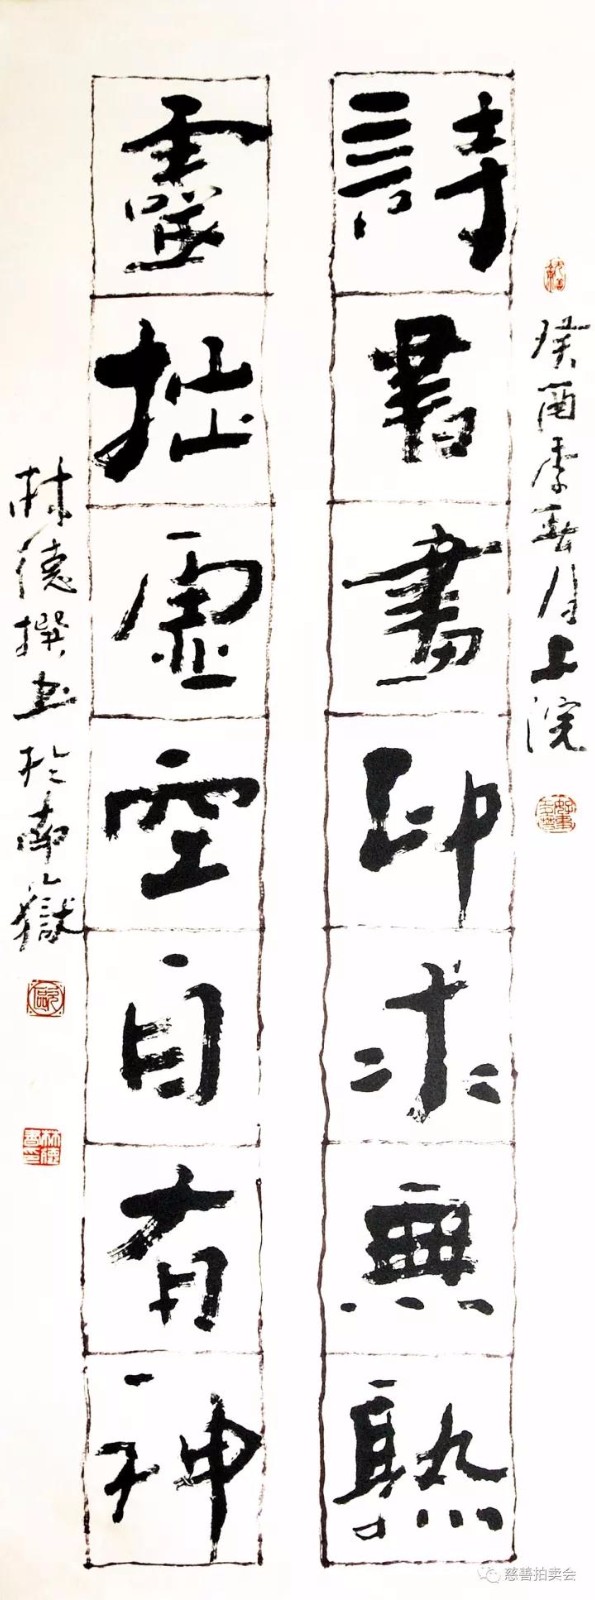 癸酉季春月上浣
詩書畫印求無熟
靈拙虛空自有神
林德撰書於南嶽
慈善拍卖会